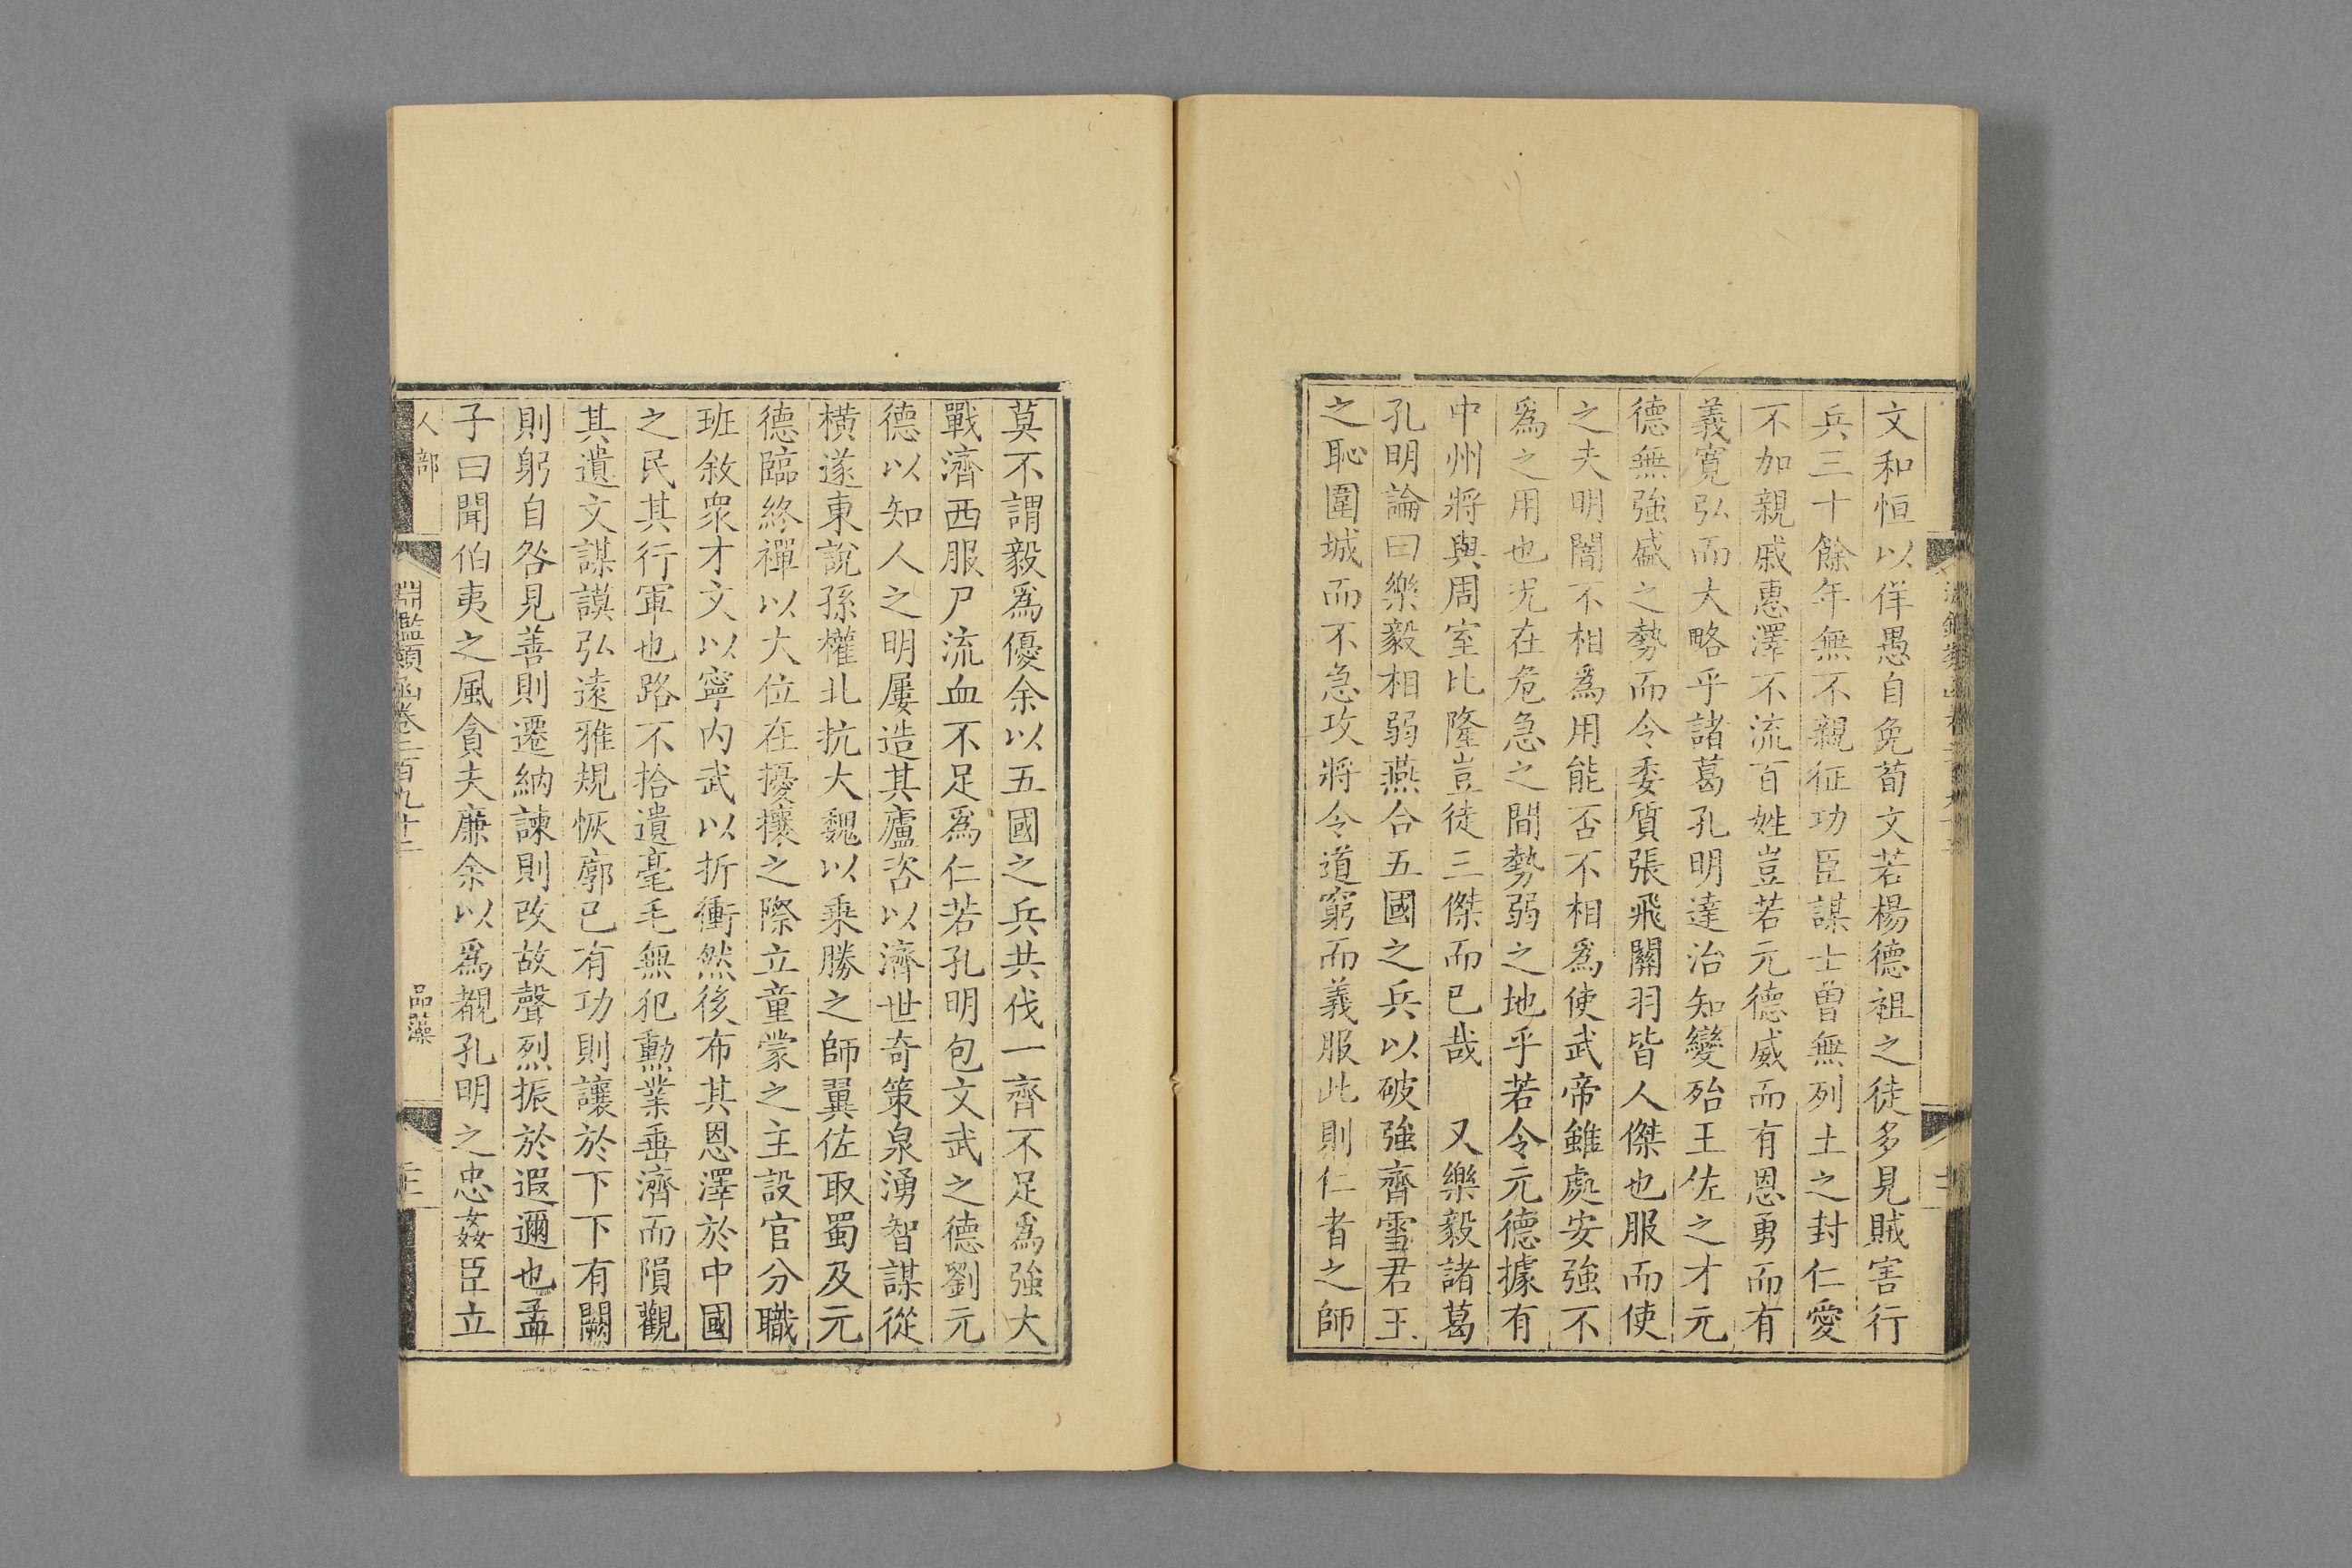 文和恒以佯愚自免荀文若楊德祖之徒多見賊害行
兵三十餘年無不親征功臣謀士曾無列土之封仁愛
不加親戚惠澤不流百姓豈若元德威而有恩勇而有
義寬弘而大略乎諸葛孔明達治知變殆王佐之才元
德無強盛之勢而令委質張飛關羽皆人傑也服而使
之夫明闇不相爲用能否不相爲使武帝雖處安強不
爲之用也況在危急之間勢弱之地乎若令元德據有
中州將與周室比隆豈徒三傑而已哉　又樂毅諸葛
孔明論曰樂毅相弱燕合五國之兵以破強齊雪君王
之恥圍城而不急攻將令道窮而義服此則仁者之師
莫不謂毅爲優余以五國之兵共伐一齊不足爲強大
戰濟西服尸流血不足爲仁若孔明包文武之德劉元
德以知人之明屢造其廬咨以濟世奇策泉湧智謀從
橫遂東說孫權北抗大魏以乘勝之師翼佐取蜀及元
德臨終禪以大位在擾攘之際立童蒙之主設官分職
班敘眾才文以寧內武以折衝然後布其恩澤於中國
之民其行軍也路不拾遺毫毛無犯勲業垂濟而隕觀
其遺文謀謨弘遠雅規恢廓己有功則讓於下下有闕
則躬自咎見善則遷納諫則改故聲烈振於遐邇也孟
子曰聞伯夷之風貪夫廉余以爲覩孔明之忠姦臣立
人部
淵鑑類函卷二百九十二
品藻